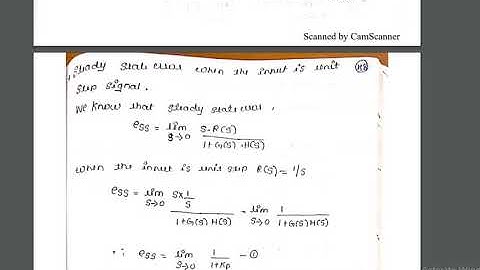 Scanned by CamScanner
Steady state error when the input is unit
step signal.
We know that steady state error,
ess = lim s→0 S·R(S) / 1+G(S)·H(S)
when the input is unit step R(S) = 1/s
ess = lim s→0 S×1/S / 1+G(S)H(S) = lim s→0 1 / 1+G(S)H(S)
∴ ess = lim s→0 1 / 1+Kp - ①